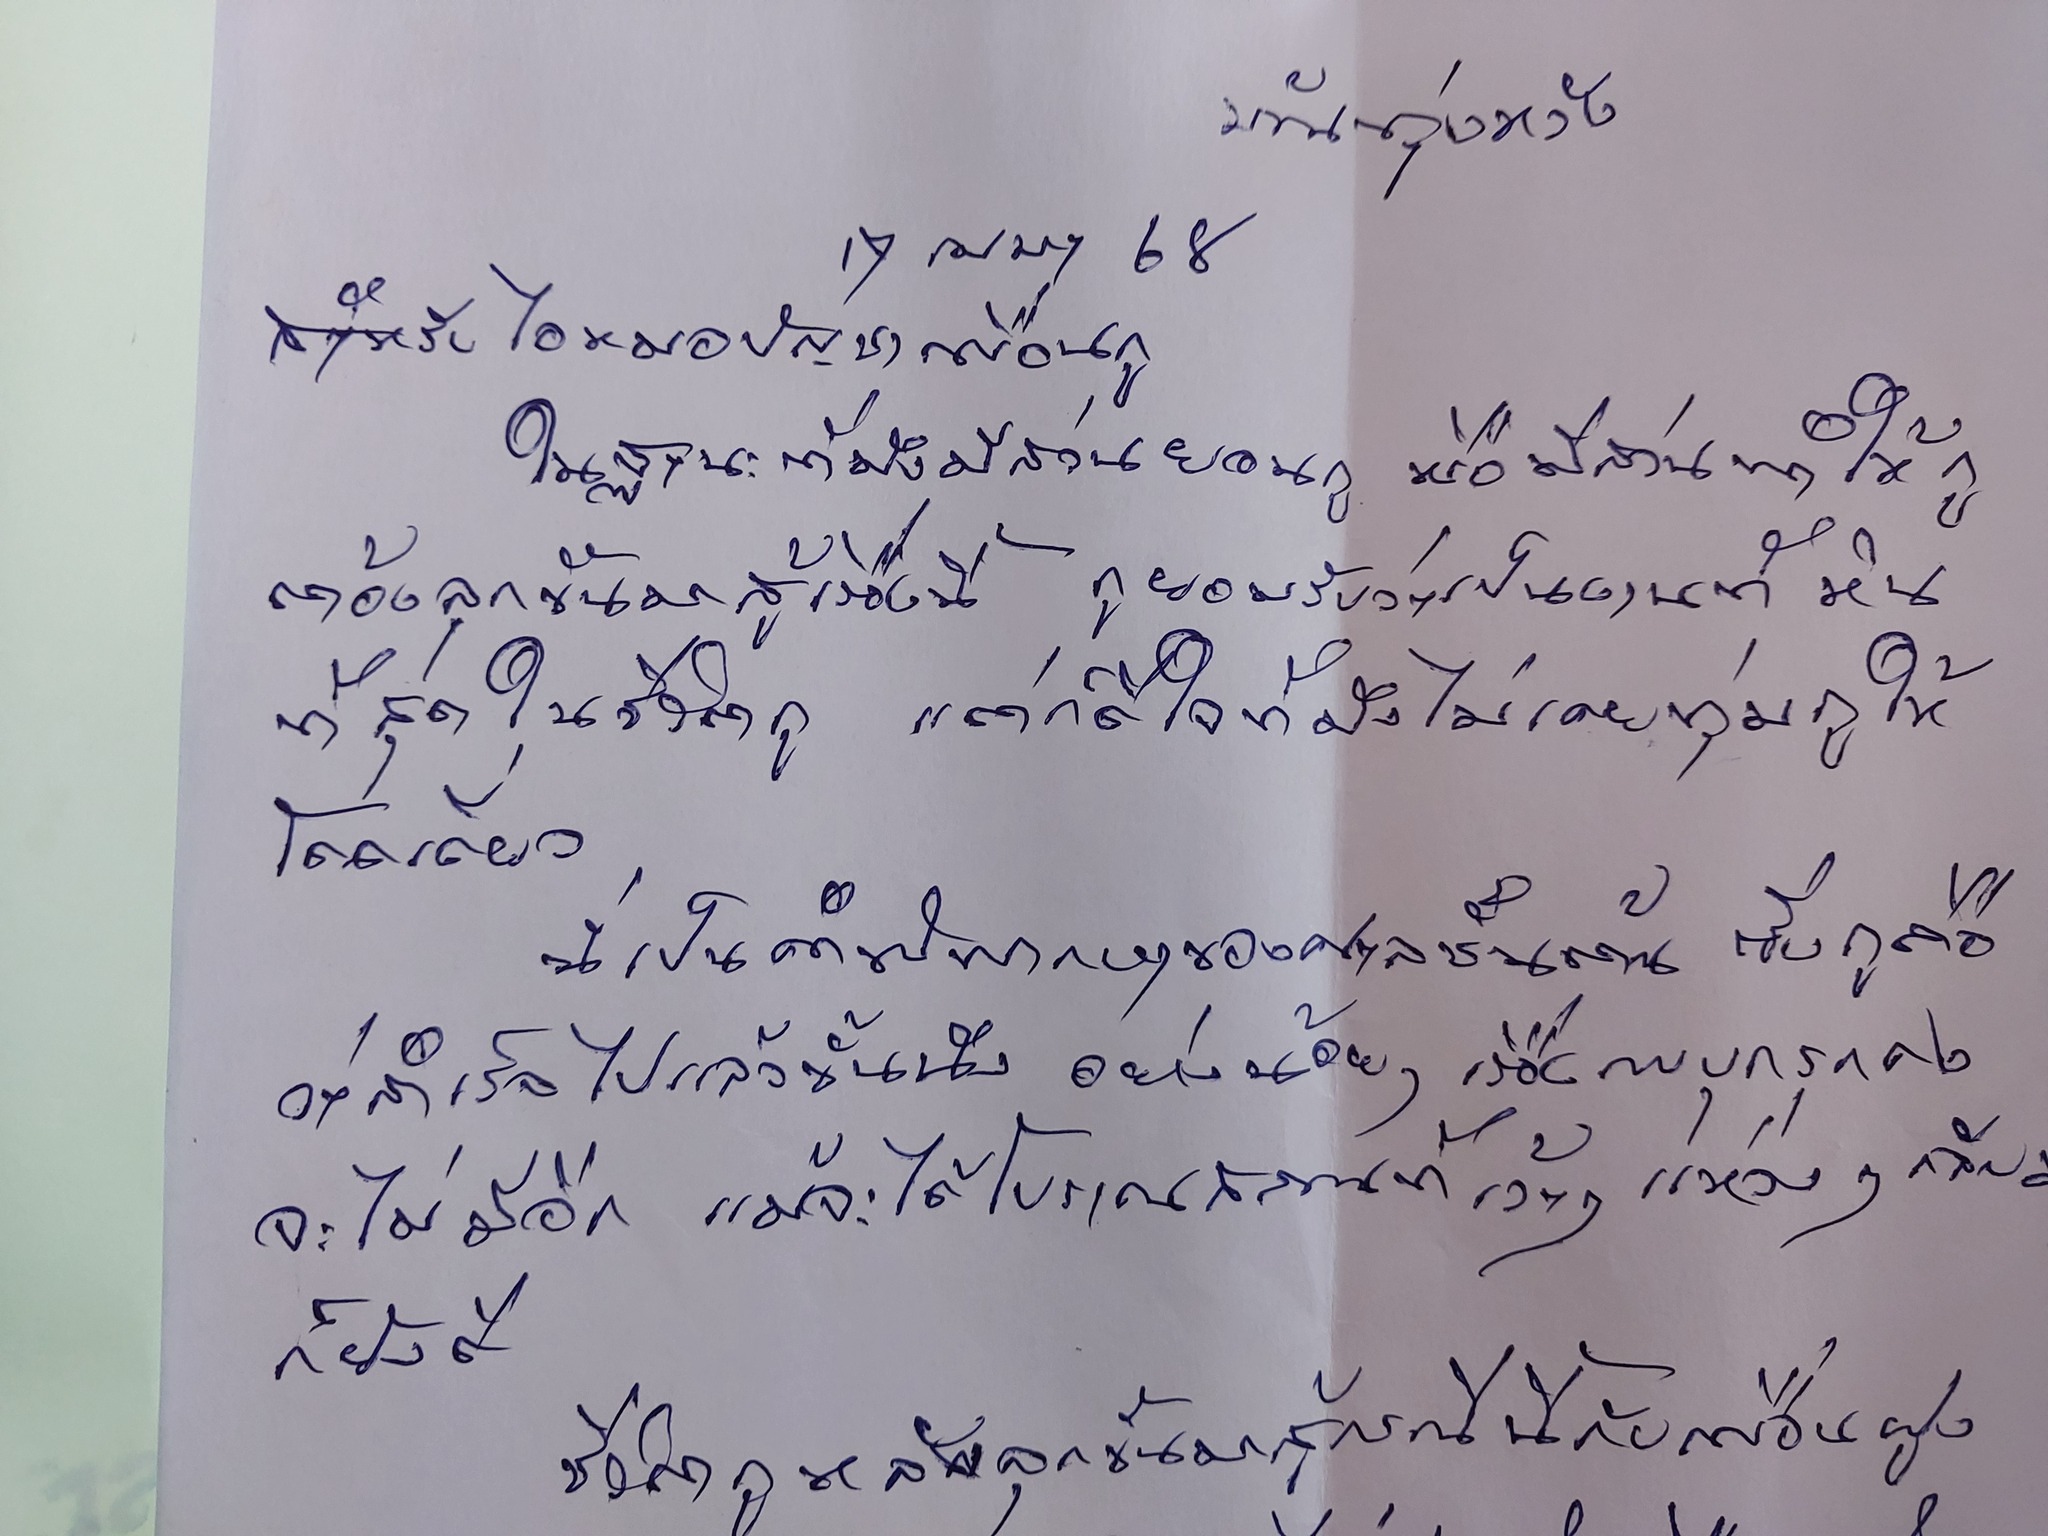 บ้านทุ่งหวัง
17 เมษา 68
สำหรับ ไอหมอบัญชา เพื่อนกู
ในฐานะที่มึงมีส่วนยอนกู หรือมีส่วนทำให้กู
ต้องลุกขึ้นมาสู้เรื่องนี้ กูยอมรับว่าเป็นงานที่ หิน
ที่สุด ในชีวิตกู แต่ก็ดีใจที่มึงไม่เคยทุ่มกูให้
โดดเดี่ยว
นี่เป็นคำพิพากษาของศาลชั้นต้น ซึ่งกูถือ
ว่าสำเร็จไปแล้วขั้นนึง อย่างน้อยๆ เรื่องบุกรุก
จะไม่มีอีก แม้จะได้โบราณสถานที่ เว้าๆ แหว่งๆ กลับม
ก็ยังดี
ชีวิตกู หลังลุกขึ้นมาสู้กรณีนี้กับเพื่อนฝูง